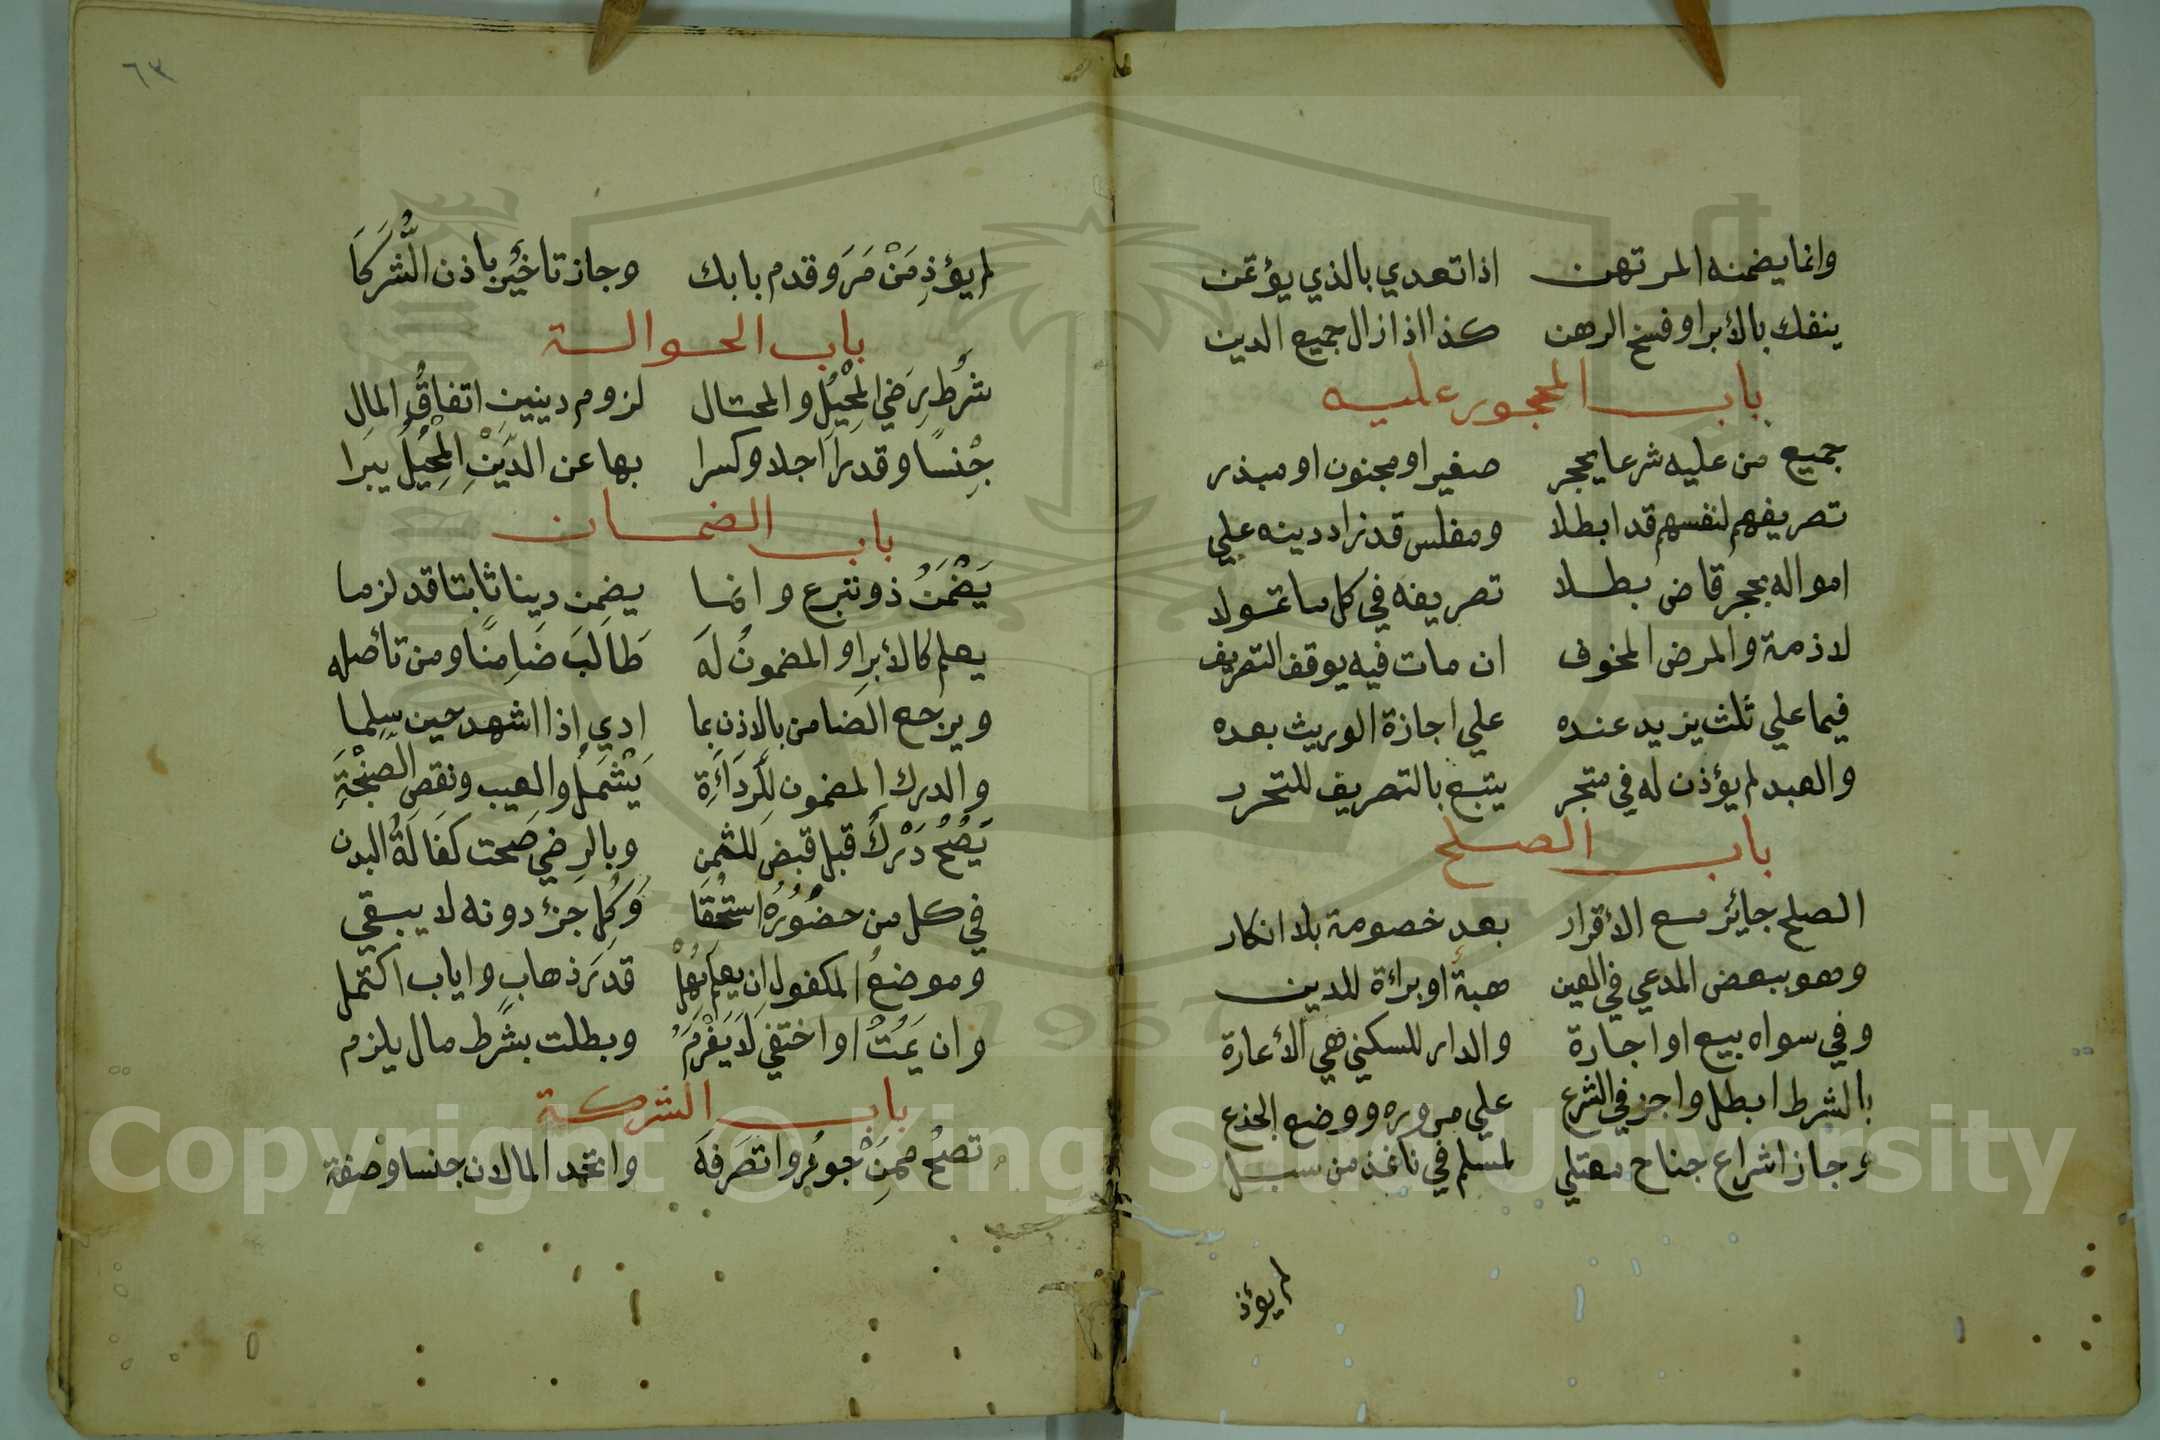 وانما يضمنه المرتهن اذا تعدي بالذي يؤتمن
ينفك بالأبرا وفسخ الرهن كذا اذا زال جميع الدين
باب المحجور عليه
جميع من عليه شرعا يحجر صغير او مجنون او مبذر
تصريفهم لنفسهم قد ابطلا ومفلس قد زاد دينه علي
امواله بحجر قاض بطلا تصريفه في كل ما تمولا
لا ذمة والمرض المخوف ان مات فيه يوقف التصريف
فيما علي ثلث يزيد عنده علي اجازة الوريث بعده
والعبد لم يؤذن له في متجر يتبع بالتصريف للتحرر
باب الصلح
الصلح جايز مع الأقرار بعد خصومة بلا انكار
وهو ببعض المدعي في العين هبة او براءة للدين
وفي سواه بيع او اجارة والدار للسكني هي الأعارة
بالشرط ابطل واجز في الشرع علي مروره ووضع الجذع
وجاز اشراع جناح معتلي لمسلم في نافذ من سبل
لم يؤذ
٦٣
لم يؤذِ مَنْ مَرَ وقدم بابك وجاز تاخيُر باذن الشُّرَكَا
باب الحوالة
شرُط رِضي المُحِيْلِ والمحتال لزوم دينين اتفاقُ المال
جِنْسًا وقدرًا اجلا وكسرا بها عن الدَيْنِ المُحِيْلُ يبرا
باب الضمان
يَضْمَنُ ذو تبرع وانما يضمن دينا ثابتا قد لزما
يعلم كالأبرا والمضمونُ لَه طَالَبَ ضَامِنًا ومن تأصله
ويرجع الضامن بالاذن بما ادي اذا اشهد حين سلما
والدرك المضمون لِلرَدَاءَةِ يَشْمَلُ والعيب ونقص الصَنْجَةِ
يَصُحُ دَرْكٌ قبل قبض للثمن وبالرضي صَحت كفَالَةُ البدن
في كل من حضُوُرُه استُحُقَا وَكُلِ جزء دونه لا يبقي
وموضعُ المكفول ان يعلم يُهْل قدرَ ذهابٍ واياب اكتمل
وان يَمُتْ او اختفي لَا يَغْرَمُ وبطلت بشَرط مال يلزم
باب الشركة
تصحُ ممَنِ جوزُوا تصَرفَه واتحد المالان جنسا وصفة
Copyright © King Saud University
1957